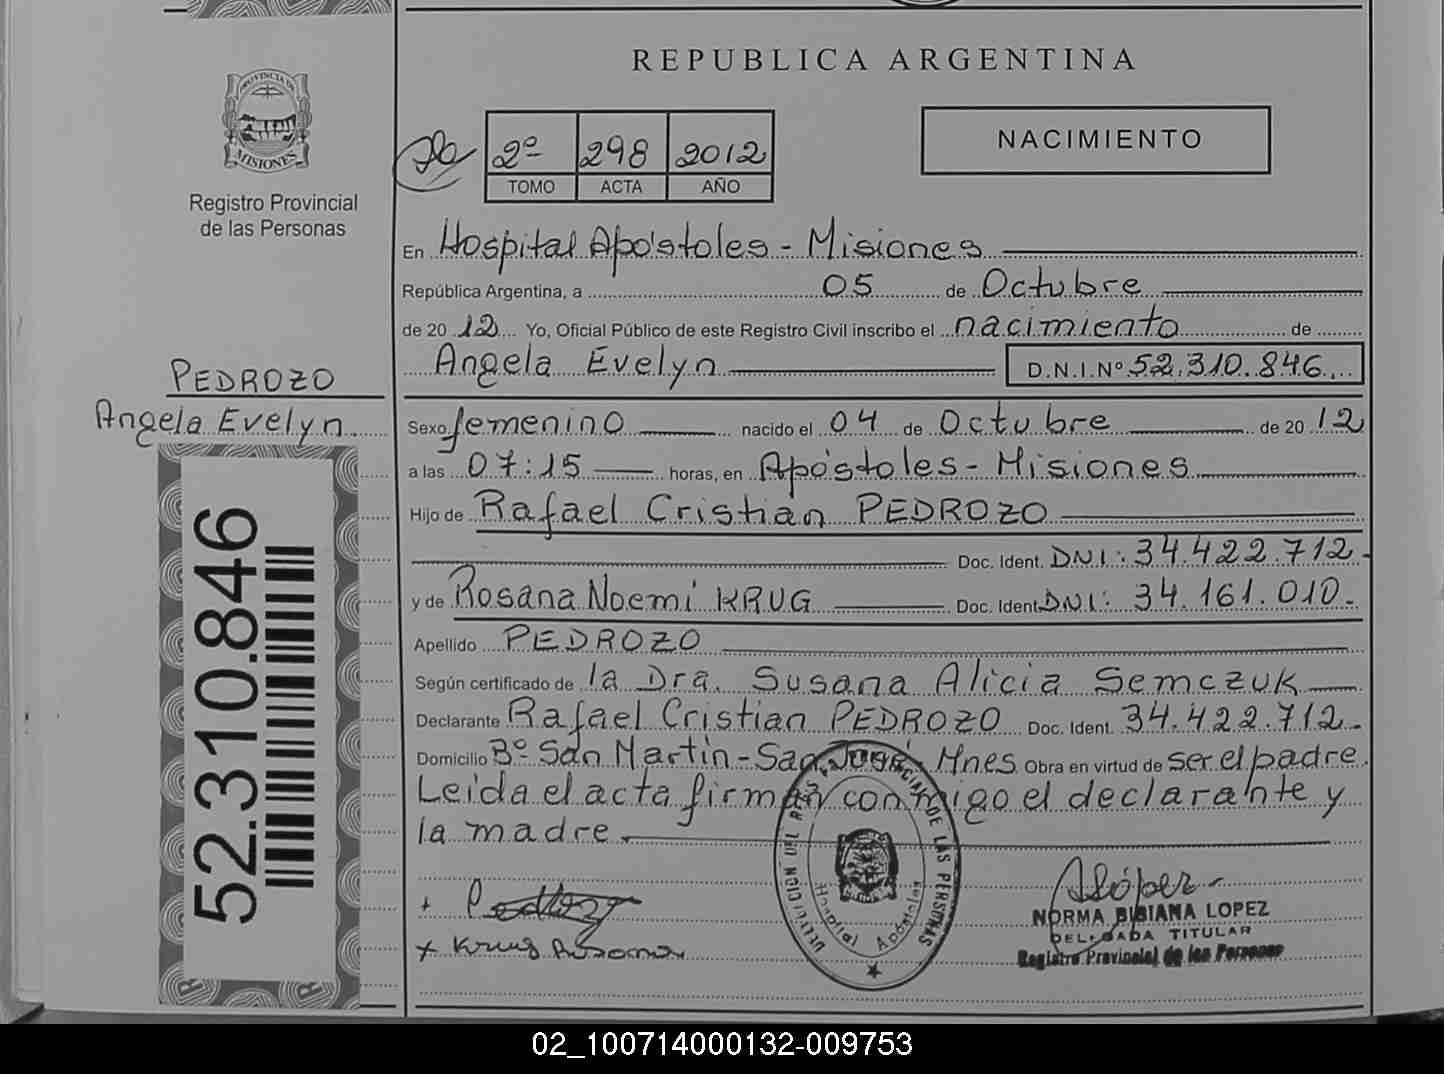 REPUBLICA ARGENTINA
PROVINCIA DE
MISIONES
Registro Provincial
de las Personas
2º 298 2012
TOMO ACTA AÑO
NACIMIENTO
En Hospital Apóstoles - Misiones
República Argentina, a 05 de Octubre
de 20 12 Yo, Oficial Público de este Registro Civil inscribo el nacimiento de
Angela Evelyn D.N.I.Nº 52.310.846
PEDROZO
Angela Evelyn
Sexo femenino nacido el 04 de Octubre de 20 12
a las 07:15 horas, en Apóstoles - Misiones
Hijo de Rafael Cristian PEDROZO
Doc. Ident. DNI: 34.422.712-
y de Rosana Noemi KRUG Doc. Ident DNI: 34.161.010-
Apellido PEDROZO
Según certificado de la Dra. Susana Alicia Semczuk
Declarante Rafael Cristian PEDROZO Doc. Ident. 34.422.712-
Domicilio Bº San Martín - San José - Mnes Obra en virtud de ser el padre.
Leida el acta firman conmigo el declarante y
la madre.
52.310.846
Hospital Apóstoles
+ Pedrozo
+ Krug Rosana
NORMA BIBIANA LOPEZ
DELEGADA TITULAR
Registro Provincial de las Personas
02_100714000132-009753